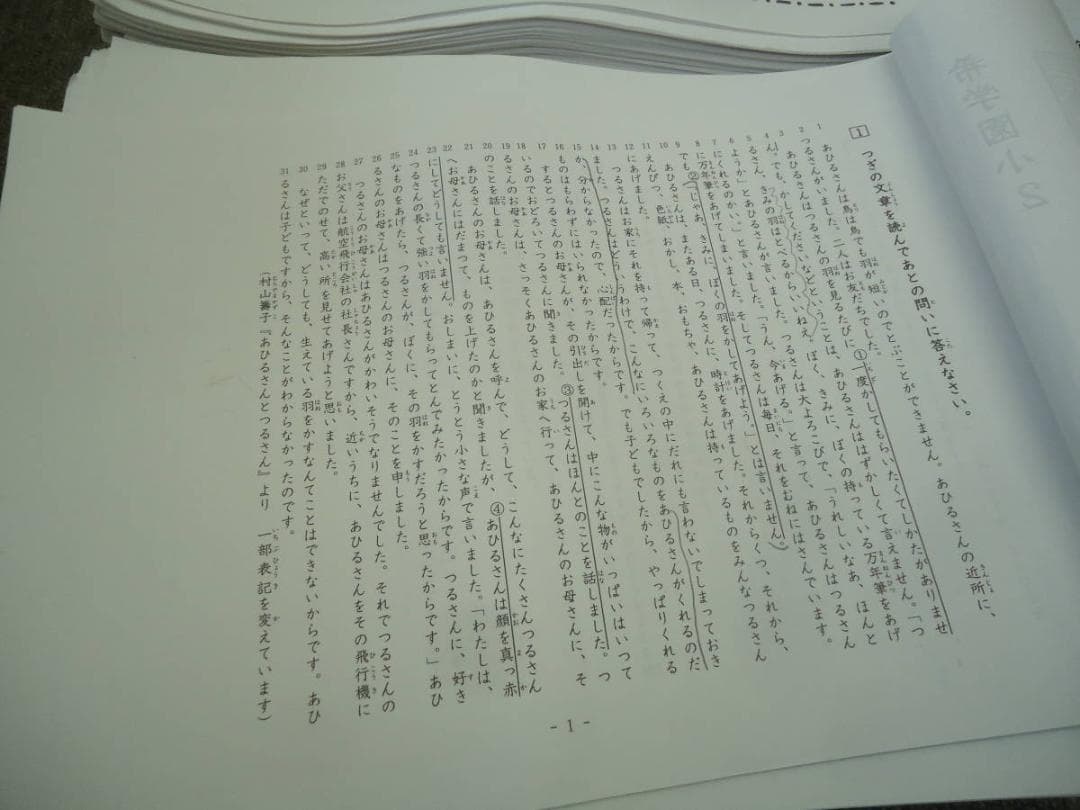 希学園小2
1 つぎの文章を読んであとの問いに答えなさい。
1 あひるさんは鳥は鳥でも羽が短いのでとぶことができません。あひるさんの近所に、
2 つるさんがいました。二人はお友だちでした。
3 あひるさんはつるさんの羽を見るたびに、①一度かしてもらいたくてしかたがありませ
4 ん。でも、かしてくださいなどということは、あひるさんははずかしくて言えません。「つ
5 るさん、きみの羽はとべるからいいねえ。ぼく、きみに、ぼくの持っている万年筆をあげ
6 ようか」とあひるさんが言いました。つるさんは大よろこびで、「うれしいなあ、ほんと
7 にくれるのかい。」と言いました。「うん、今あげる。」と言って、あひるさんはつるさん
8 に万年筆をあげてしまいました。そしてつるさんは毎日、それをむねにはさんでいます。
9 でも②「じゃあ、きみに、ぼくの羽をかしてあげよう。」とは言いません。
10 あひるさんは、またある日、つるさんに、時計をあげました。それからくつ、それから、
11 えんぴつ、色紙、おかし、本、おもちゃ、あひるさんは持っているものをみんなつるさん
12 にあげました。
13 つるさんはお家にそれを持って帰って、つくえの中にだれにも言わないでしまっておき
14 ました。つるさんはどういうわけで、こんなにいろいろなものをあひるさんがくれるのだ
15 か、分からなかったので、心配だったからです。でも子どもでしたから、やっぱりくれる
16 ものはもらわずにはいられなかったからです。
17 するとつるさんのお母さんが、その引出しを開けて、中にこんな物がいっぱいはいって
18 いるのでおどろいてつるさんに聞きました。③つるさんはほんとのことを話しました。つ
19 るさんのお母さんは、さっそくあひるさんのお家へ行って、あひるさんのお母さんに、そ
20 のことを話しました。
21 あひるさんのお母さんは、あひるさんを呼んで、どうして、こんなにたくさんつるさん
22 へお母さんにはだまって、ものを上げたのかと聞きましたが、④あひるさんは顔を真っ赤
23 にしてどうしても言いません。おしまいに、とうとう小さな声で言いました。「わたしは、
24 つるさんの長くて強い羽をかしてもらってとんでみたかったからです。つるさんに、好き
25 なものをあげたら、つるさんが、ぼくに、その羽をかすだろうと思ったからです。」あひ
26 るさんのお母さんはつるさんのお母さんに、そのことを申しました。
27 つるさんのお母さんはあひるさんがかわいそうでなりませんでした。それでつるさんの
28 お父さんは航空飛行会社の社長さんですから、近いうちに、あひるさんをその飛行機に
29 ただでのせて、高い所を見せてあげようと思いました。
30 なぜといって、どうしても、生えている羽をかすなんてことはできないからです。あひ
31 るさんは子どもですから、そんなことがわからなかったのです。
(村山籌子『あひるさんとつるさん』より 一部表記を変えています)
- 1 -